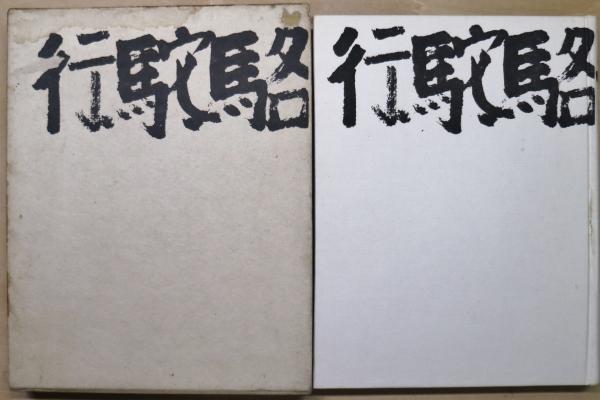 駱駝行
駱駝行